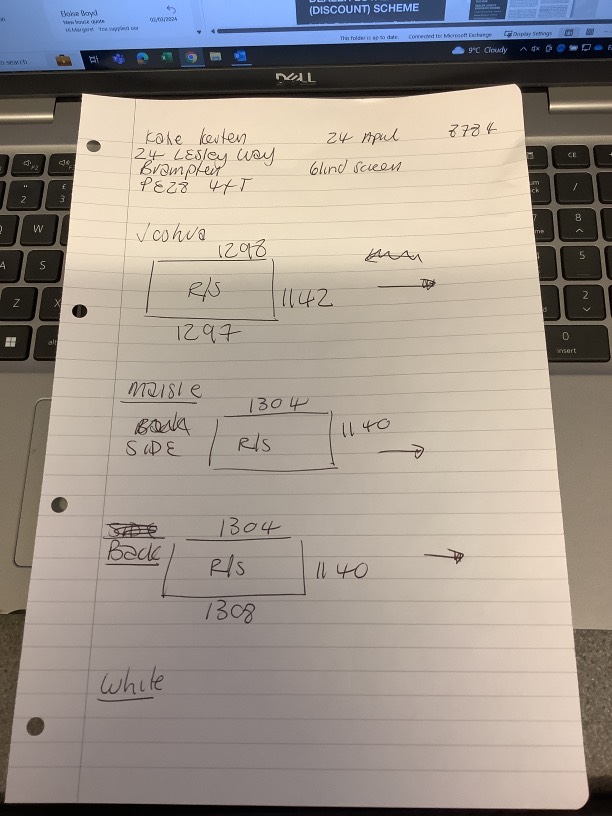 Eloise Boyd
New house quote
Hi Margaret You supplied our
02/03/2024
(DISCOUNT) SCHEME
This folder is up to date. Connected to: Microsoft Exchange Display Settings
9°C Cloudy
DELL
24 April 8784
24 Lesley Way
Brampton blind screen
PE28 4XT
Joshua
1298
R/S 1142
1297
Maisie
1304
SIDE R/S 1140
1304
Back R/S 1140
1308
White